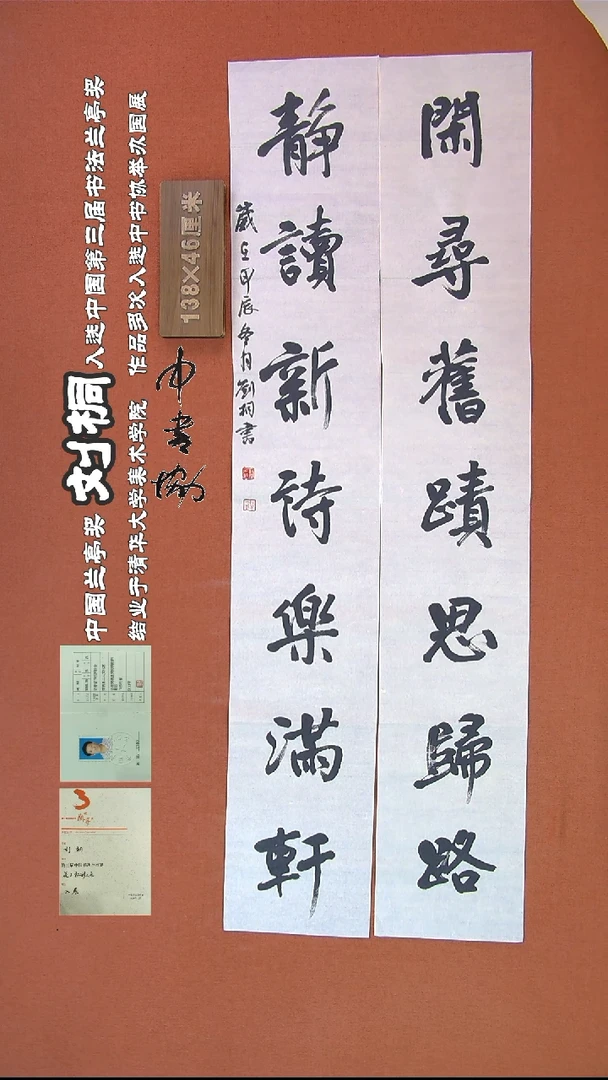 閑尋舊蹟思歸路
靜讀新詩樂滿軒
歲在甲辰冬月劉桐書
138×46厘米
中国兰亭奖 刘桐 入选中国第三届书法兰亭奖
结业于清华大学美术学院 作品多次入选中书协举办国展
中书协